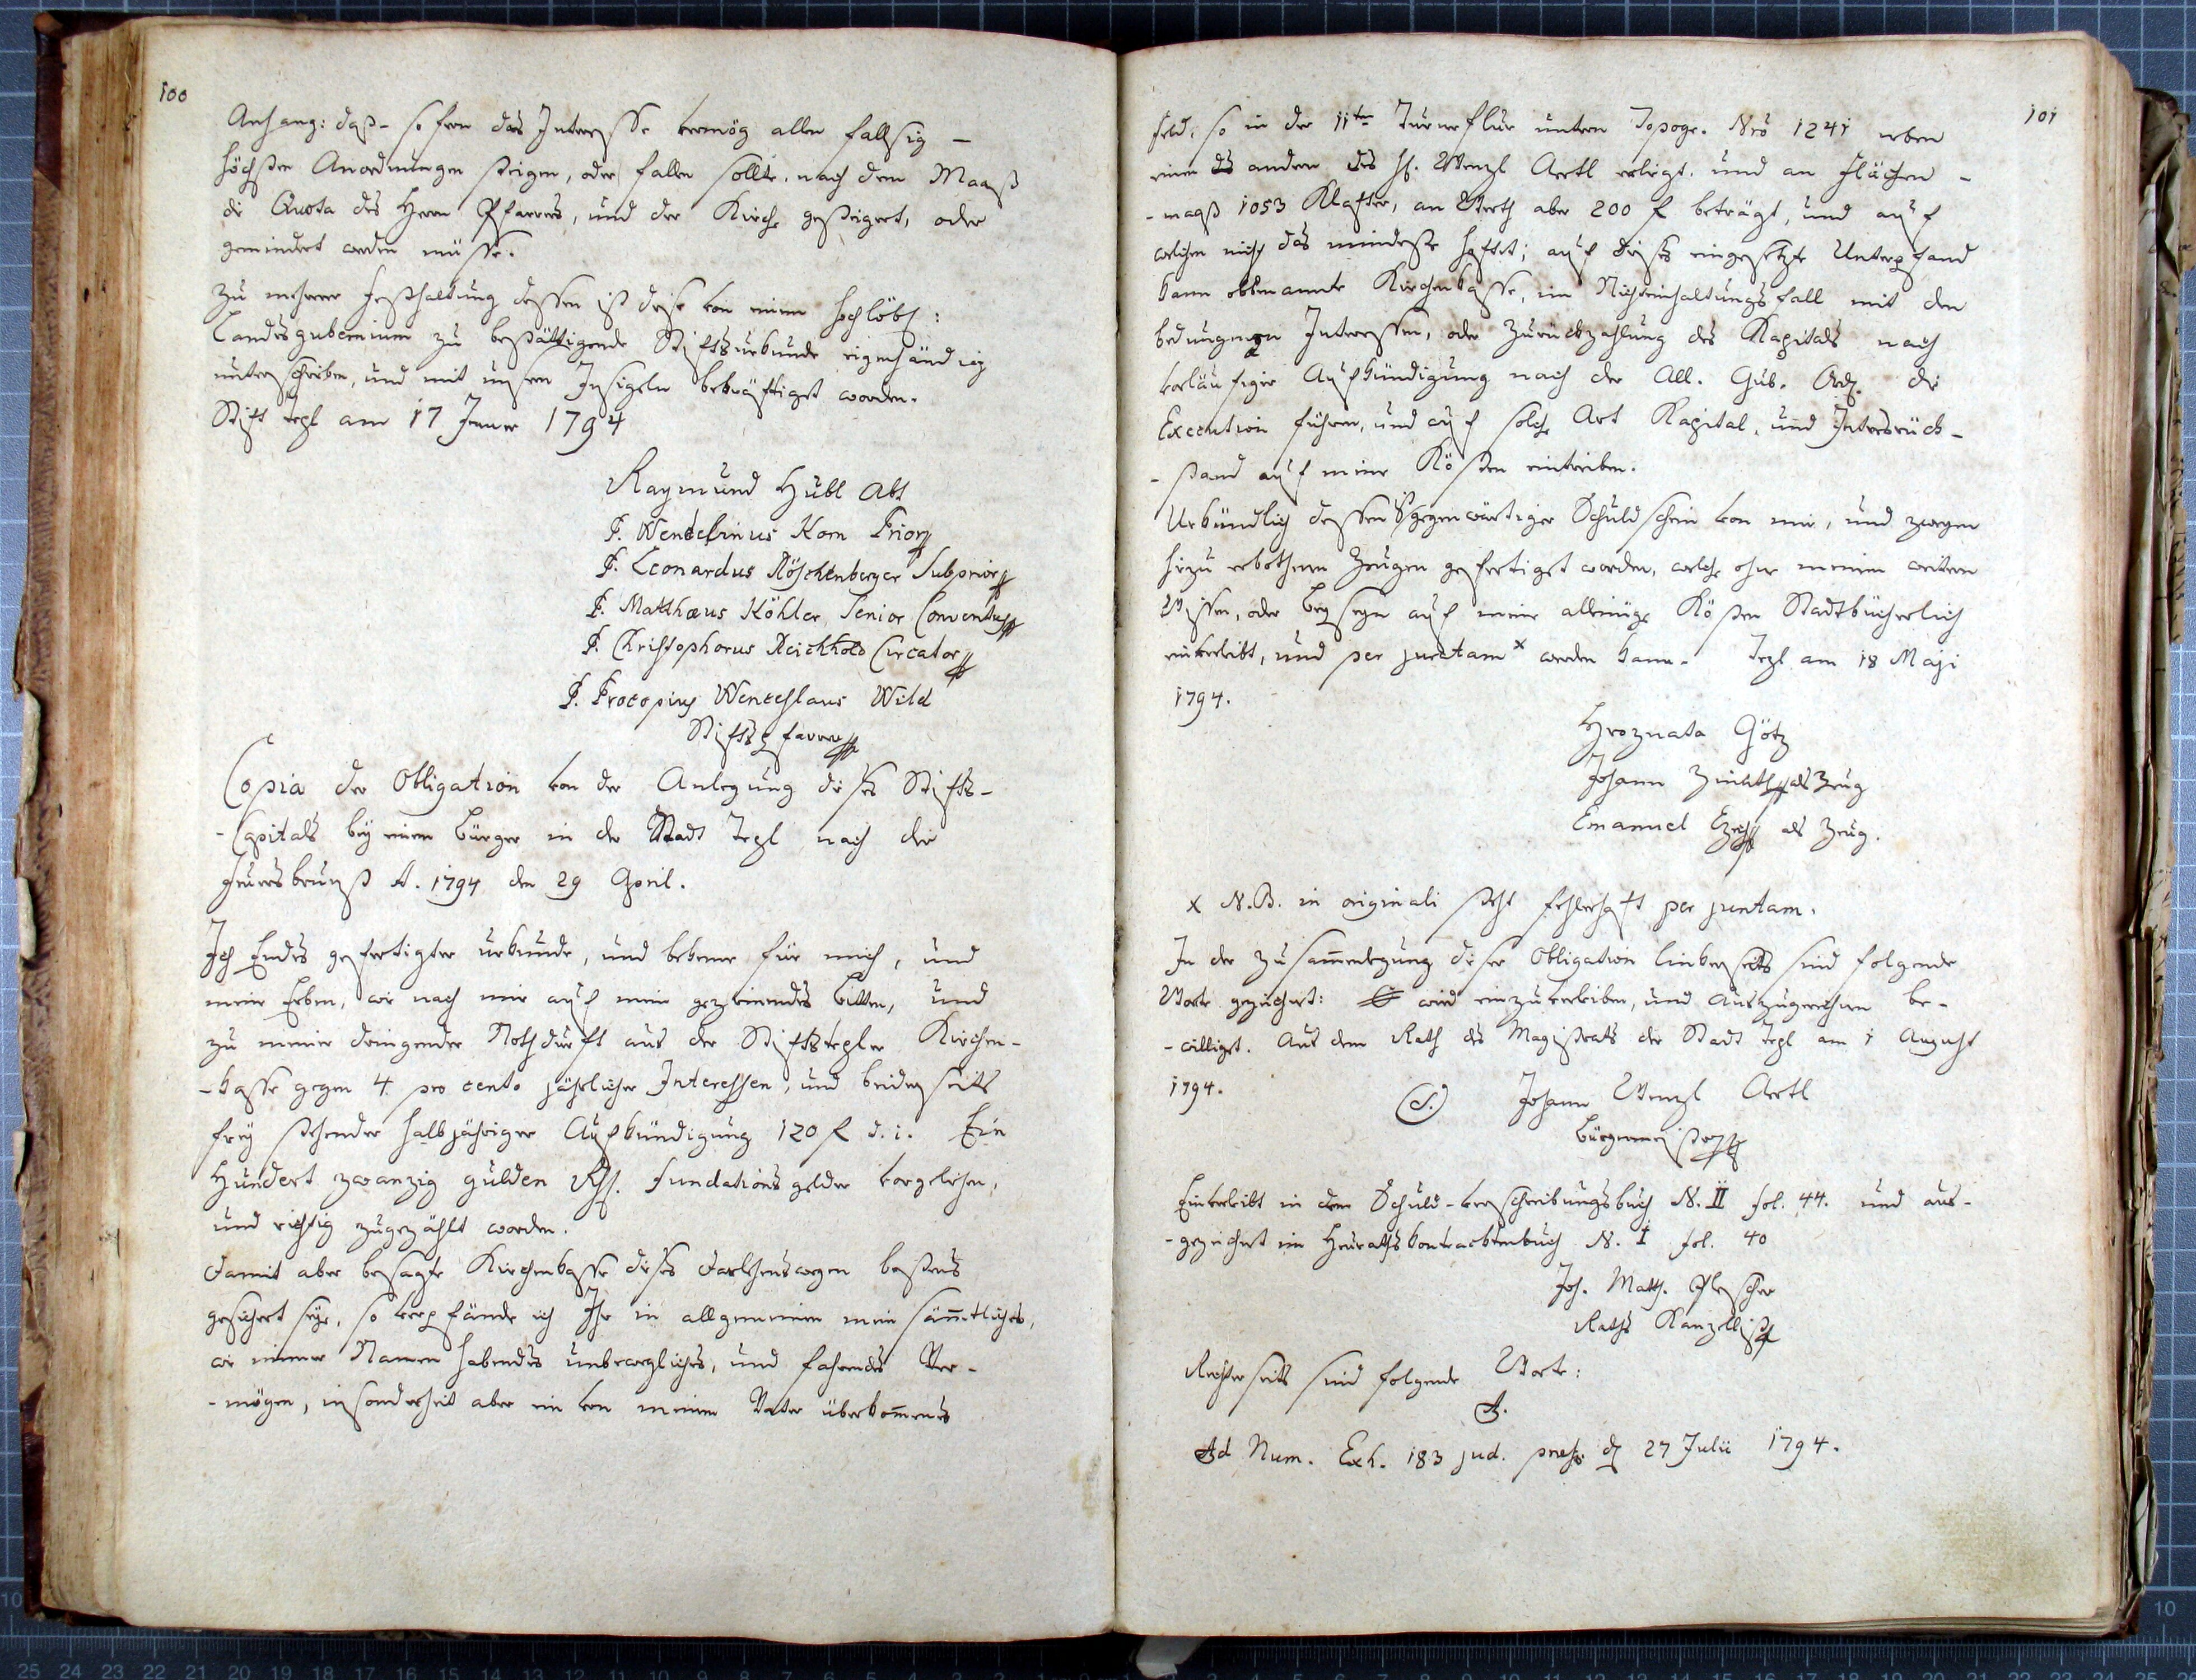 100
Anhang: daß – so fern das Interesse vermög allen fallsig –
höchsten Anordnungen steigen, oder fallen sollte, nach dem Maaß
die Quota des Herrn Pfarrers, und der Kirche gesteigert, oder
gemindert werden müsse.
Zu mehrer Festhaltung dessen ist diese von einem hochlöbl:
Landesgubernium zu bestättigende Stiftsurkunde eigenhändig
unterschrieben, und mit unsern Insigeln bekräftiget worden.
Stift Tepl am 17 Jenner 1794
Raymund Hübl Abt
P. Wendelinus Korn Prior
P. Leonardus Röschenberger Subprior
P. Matthæus Köhler, Senior Conventus
P. Christophorus Reichhold Circator
P. Procopius Wenceslaus Wild
Stiftspfarrer
Copia der Obligation von der Anlegung dieses Stifts-
-Capitals bey einem Bürger in der Stadt Tepl nach der
Feuersbrunst A. 1794 den 29 April.
Ich Endes gefertigter urkunde, und bekenne für mich, und
meine Erben, wie nach mir auf mein geziemendes bitten, und
zu meiner dringender Nothdurft aus der Stiftstepler Kirchen-
-kasse gegen 4 pro cento jährlicher Interessen, und beiderseits
frey stehender halbjähriger Aufkündigung 120 f d. i. Ein
Hundert zwanzig gulden Rh. fundationsgelder vorgelihen,
und richtig zugezählt worden.
Damit aber besagte Kirchenkasse dieses Darlehenswegen bestens
gesichert seye, so verpfände ich Ihr in allgemeinen mein sämtliches,
wie immer Namen habendes unbewegliches, und fahrendes Ver-
-mögen, insonderheit aber ein von meinem Vater überkommenes
101
Feld, so in der 11ten Turnerflur untern Topogr. Nrō 1241 neben
einen das andern des H. Wenzl Aertl erligt, und an Flächen –
- maaß 1053 Klafter, an Werth aber 200 f beträgt, und auf
welchen nicht das mindeste haftet; auf dieses eingesetzte Unterpfand
kann obbenannte Kirchenkasse, im Nichteinhaltungsfall mit den
bedungenen Interessen, oder Zurückzahlung des Kapitals nach
vorläufiger Aufkündigung nach der All. Gub. Ord. die
Execution führen, und auf solche Art Kapital, und Intresrück-
- stand auf meine Kösten eintreiben.
Urkündlich dessen ist gegenwärtiger Schuldschein von mir, und zweyen
hiezu erbothenen Zeugen gefertiget worden, welche ohne meinen weitern
Wissen, oder beyseyn auf meine alleinige Kösten Stadtbücherlich
einverleibt, und per junctam x werden kann. Tepl am 18 Maji
1794.
Hroznata Götz
Johann als Zeug
Emanuel als Zeug.
x N.B. in originali steht fehlerhaft per juntam.
In der Zusammenlegung dieser Obligation linkerseits sind folgende
Worte gezeichnet: wird einzuverleiben, und auszuzeichnen be-
- williget. Aus dem Rath des Magistrats der Stadt Tepl am 1 August
1794.
(S.) Johann Wenzl Aertl
Bürgermeister
Einverleibt in dem Schuld-verschreibungsbuch N. II fol. 44. und aus-
- gezeichnet im Heurathskontracktenbuch N. I fol. 40
Joh. Math. Pfleschier
Raths Kanzellist
Rechterseits sind folgende Worte:
A.
Ad Num. Exh. 183 jud. præs. d 27 Julii 1794.